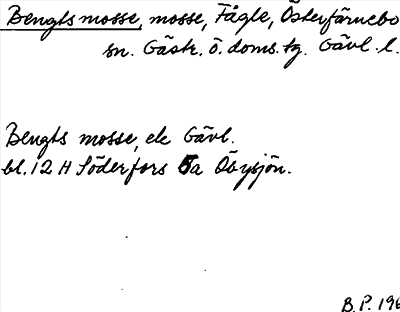 Bengts mosse, mosse, Fågle, Österfärnebo
sn. Gästr. ö. doms. tg. Gävl. l.
Bengts mosse, ek Gävl.
bl. 12 H Söderfors 5a Öbysjön.
B.P. 196